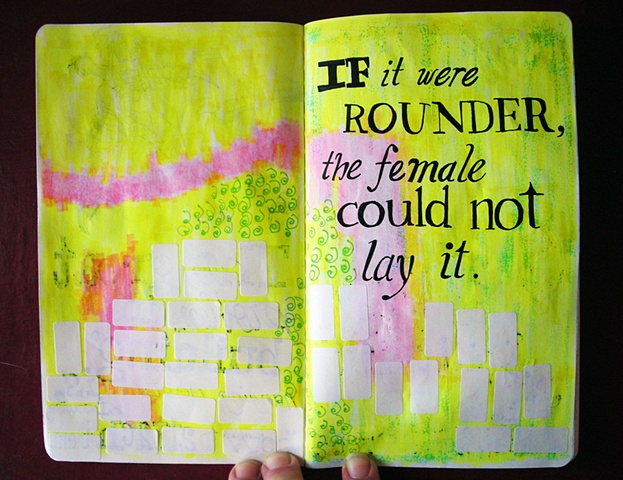 IF it were
ROUNDER,
the female
could not
lay it.